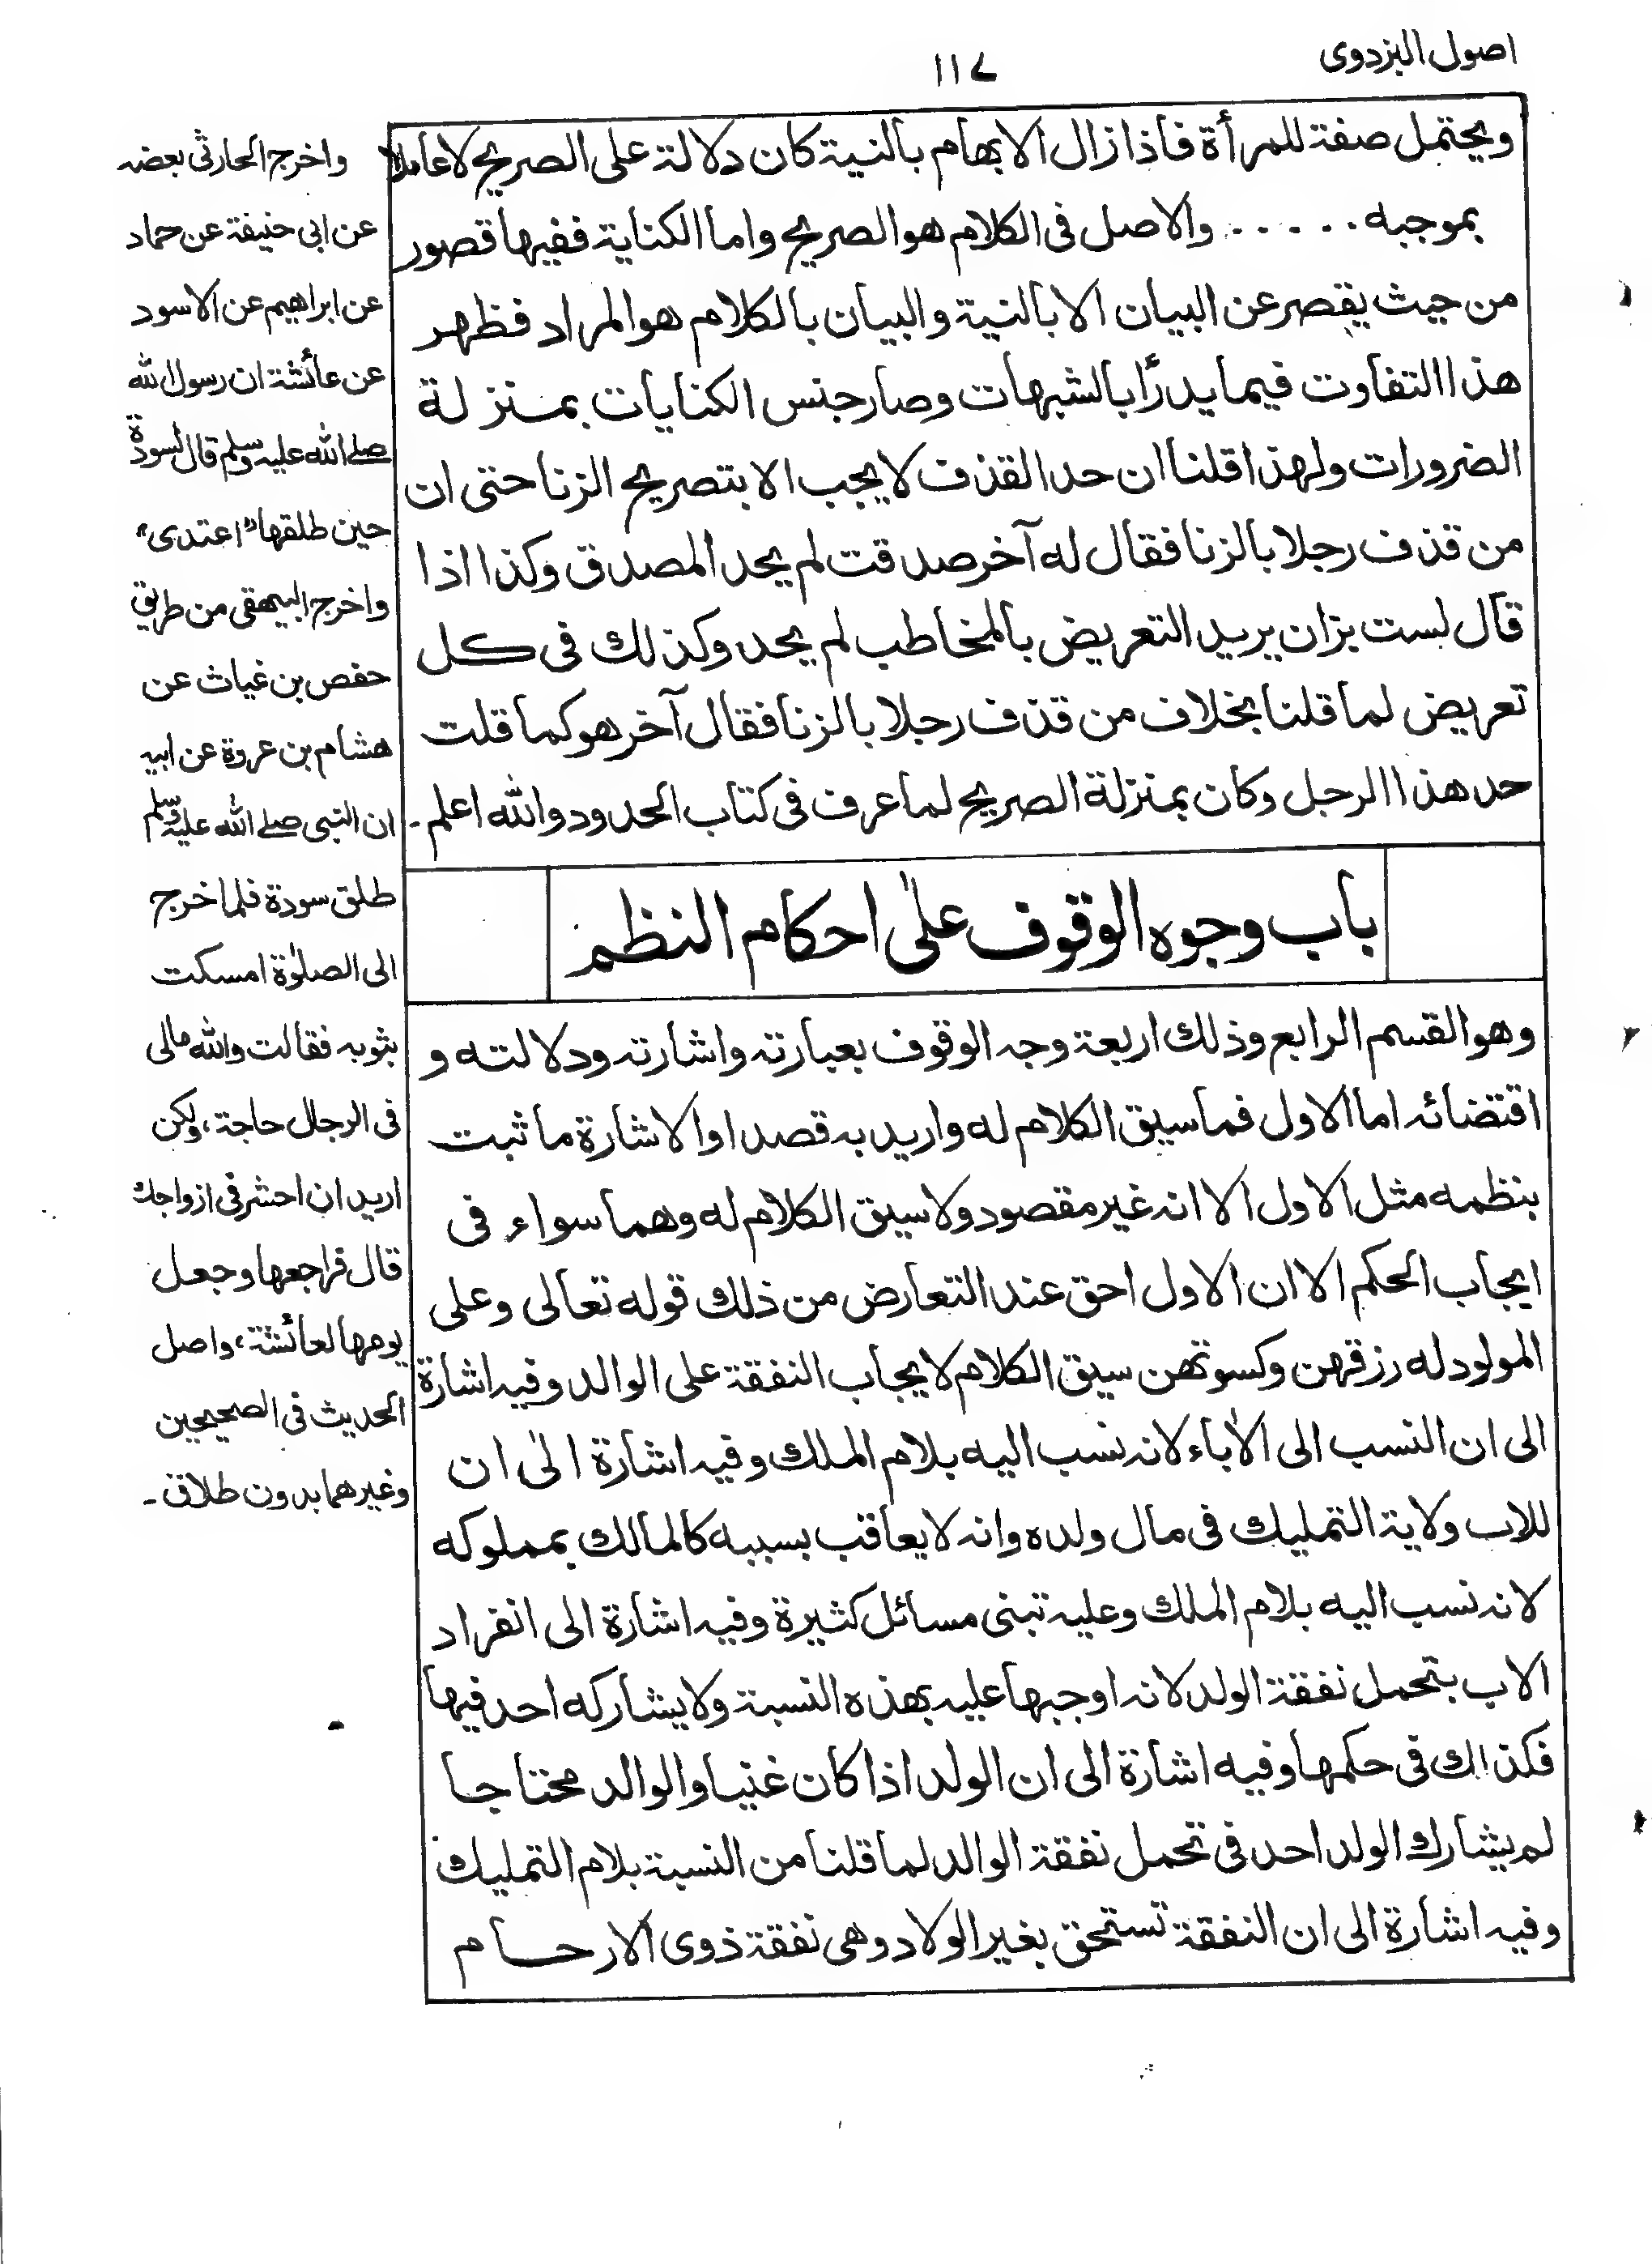 اصول البزدوى
١١٧
ويحتمل صفة للمرأة فاذا زال الابهام بالنية كان دلالة على الصريح لاعاملا
بموجبه . . . . . والاصل فى الكلام هو الصريح واما الكناية ففيها قصور
من حيث يقصر عن البيان الا بالنية والبيان بالكلام هو المراد فظهر
هذا التفاوت فيما يدرأ بالشبهات وصار جنس الكنايات بمنزلة
الضرورات ولهذا قلنا ان حد القذف لا يجب الا بتصريح الزنا حتى ان
من قذف رجلا بالزنا فقال له آخر صدقت لم يحد المصدق وكذا اذا
قال لست بزان يريد التعريض بالمخاطب لم يحد وكذلك فى كل
تعريض لما قلنا بخلاف من قذف رجلا بالزنا فقال آخر هو كما قلت
حد هذا الرجل وكان بمنزلة الصريح لما عرف فى كتاب الحدود والله اعلم -
باب وجوه الوقوف على احكام النظم
وهو القسم الرابع وذلك اربعة وجه الوقوف بعبارته واشارته ودلالته و
اقتضائه اما الاول فما سيق الكلام له واريد به قصدا والاشارة ما ثبت
بنظمه مثل الاول الا انه غير مقصود ولا سيق الكلام له وهما سواء فى
ايجاب الحكم الا ان الاول احق عند التعارض من ذلك قوله تعالى وعلى
المولود له رزقهن وكسوتهن سيق الكلام لايجاب النفقة على الوالد وفيه اشارة
الى ان النسب الى الأباء لانه نسب اليه بلام الملك وفيه اشارة الى ان
للاب ولاية التمليك فى مال ولده وانه لا يعاقب بسببه كالمالك بمملوكه
لانه نسب اليه بلام الملك وعليه تبنى مسائل كثيرة وفيه اشارة الى انفراد
الاب بتحمل نفقة الولد لانه اوجبها عليه بهذه النسبة ولا يشاركه احد فيها
فكذلك فى حكمها وفيه اشارة الى ان الولد اذا كان غنيا والوالد محتاجا
لم يشارك الولد احد فى تحمل نفقة الوالد لما قلنا من النسبة بلام التمليك
وفيه اشارة الى ان النفقة تستحق بغير الولاد وهى نفقة ذوى الارحام
واخرج الحارثى بعضه
عن ابى حنيفة عن حماد
عن ابراهيم عن الاسود
عن عائشة ان رسول الله
صلے الله عليه وسلم قال لسودة
حين طلقها "اعتدى"
واخرج البيهقى من طريق
حفص بن غياث عن
هشام بن عروة عن ابيه
ان النبى صلے الله عليه وسلم
طلق سودة فلما خرج
الى الصلوٰة امسكت
بثوبه فقالت والله مالى
فى الرجال حاجة، ولكن
اريد ان احشر فى ازواجك
قال فراجعها وجعل
يومها لعائشة، واصل
الحديث فى الصحيحين
وغيرهما بدون طلاق -